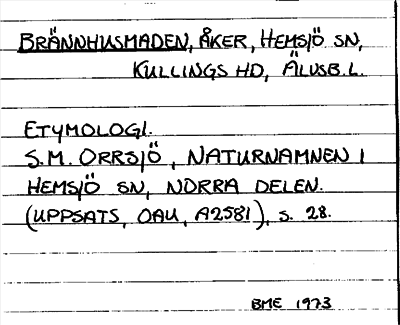 BRÄNNHUSMADEN, ÅKER, HEMSJÖ SN,
KULLINGS HD, ÄLVSB.L.
ETYMOLOGI.
S.M. ORRSJÖ, NATURNAMNEN I
HEMSJÖ SN, NORRA DELEN.
(UPPSATS, OAU, A2581), S. 28.
BME 1973